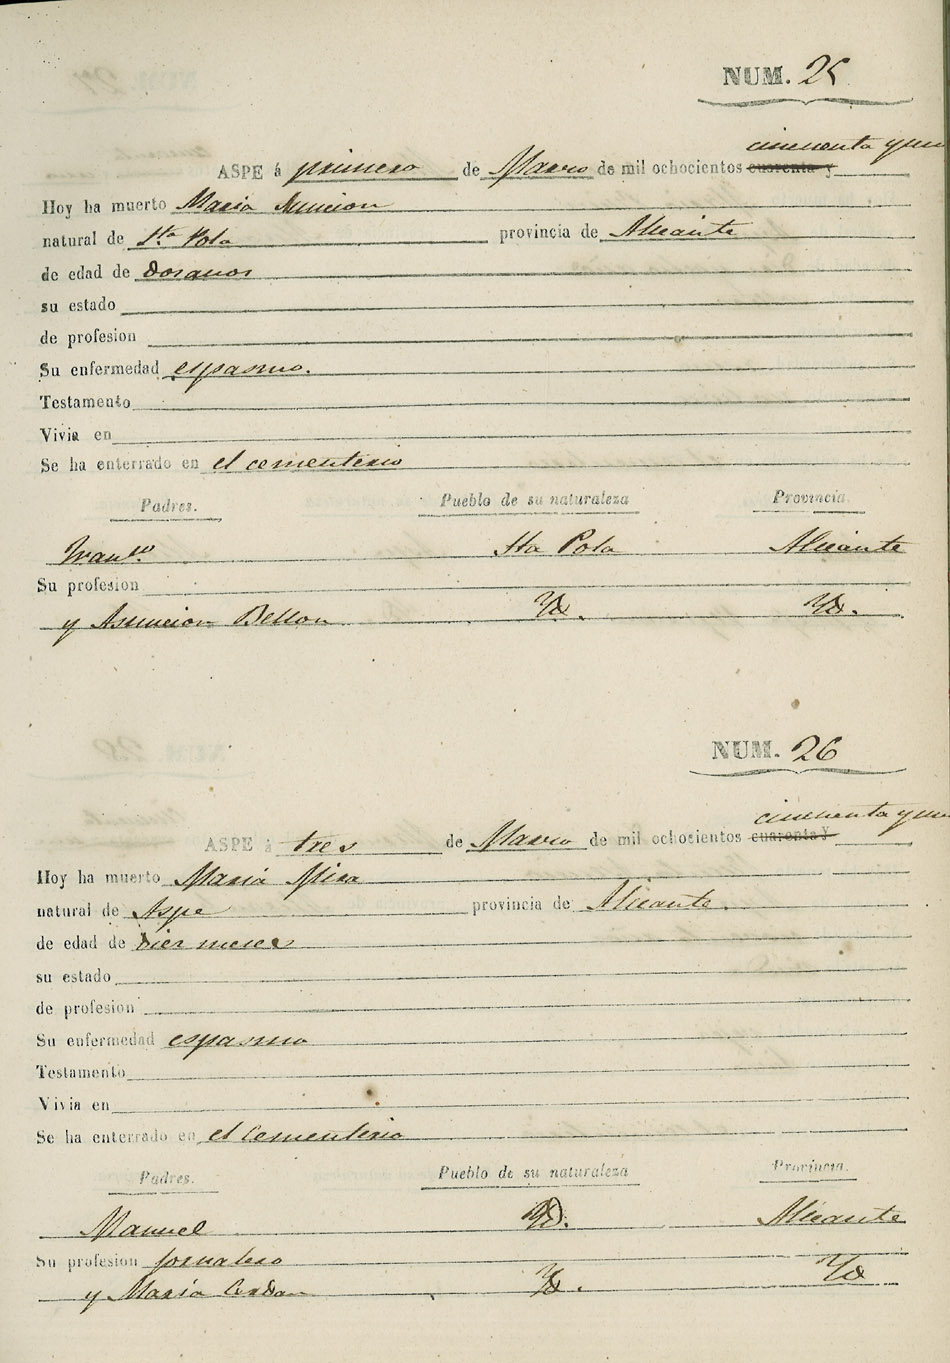 NUM. 25
ASPE á primero de Marzo de mil ochocientos cuarenta y cincuenta y un
Hoy ha muerto Maria Asuncion
natural de Sta. Pola provincia de Alicante
de edad de dos anos
su estado
de profesion
Su enfermedad espasmo.
Testamento
Vivia en
Se ha enterrado en el cementerio
Padres. Pueblo de su naturaleza Provincia.
Franco. Sta Pola Alicante
Su profesion
y Asuncion Bellon Yd. Yd.
NUM. 26
ASPE á tres de Marzo de mil ochocientos cuarenta y cincuenta y un
Hoy ha muerto Maria Mira
natural de Aspe provincia de Alicante.
de edad de diez meses
su estado
de profesion
Su enfermedad espasmo
Testamento
Vivia en
Se ha enterrado en el Cementerio
Padres. Pueblo de su naturaleza Provincia.
Manuel Yd. Alicante
Su profesion jornalero
y Maria Cerdan Yd. Yd